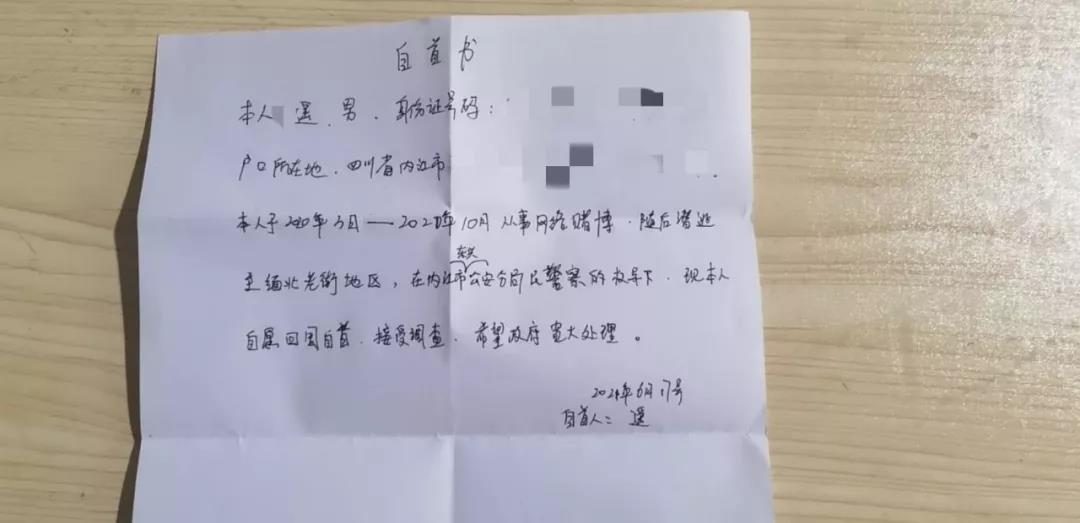 自首书
本人 遥、男、身份证号码：
户口所在地、四川省内江市
本人于2020年3月——202 年10月从事网络赌博．随后潜逃
至缅北老街地区，在内江市东兴公安分局民警察的教导下．现本人
自愿回国自首．接受调查．希望政府宽大处理。
202 年6月17号
自首人：遥